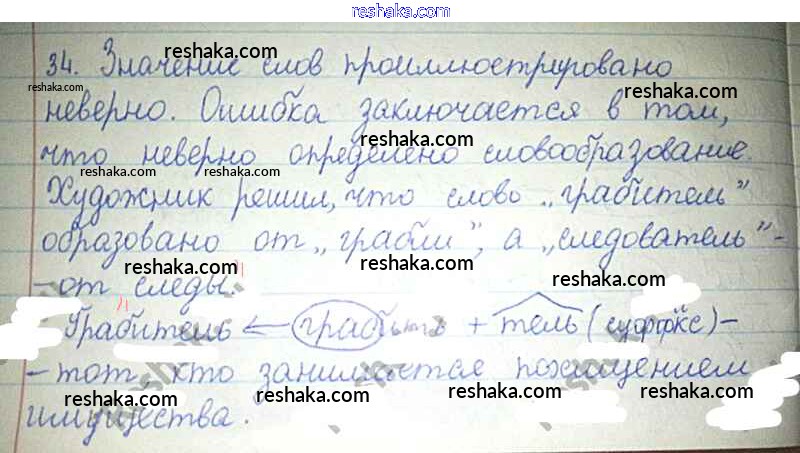 reshaka.com
34. Значение слов проиллюстрировано
reshaka.com
reshaka.com
неверно. Ошибка заключается в том,
reshaka.com
что неверно определено словообразование.
reshaka.com
reshaka.com
Художник решил, что слово „грабитель”
reshaka.com
образовано от „грабли”, а „следователь” -
reshaka.com
reshaka.com
reshaka.com
- от „следы.”
reshaka.com
Грабитель ← грабить + тель (суффикс) -
reshaka.com
- тот, кто занимается похищением
reshaka.com
reshaka.com
имущества.
reshaka.com